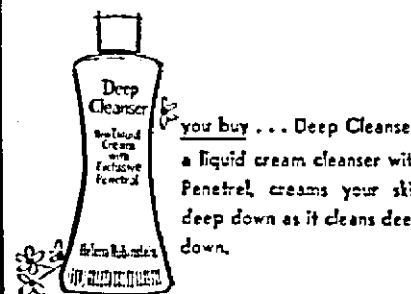 Deep
Cleanser
Liquid
Cream
with
Exclusive
Penetrel
Helena Rubinstein
you buy . . . Deep Cleanse
a liquid cream cleanser wit
Penetrel, creams your sk
deep down as it cleans deep
down.